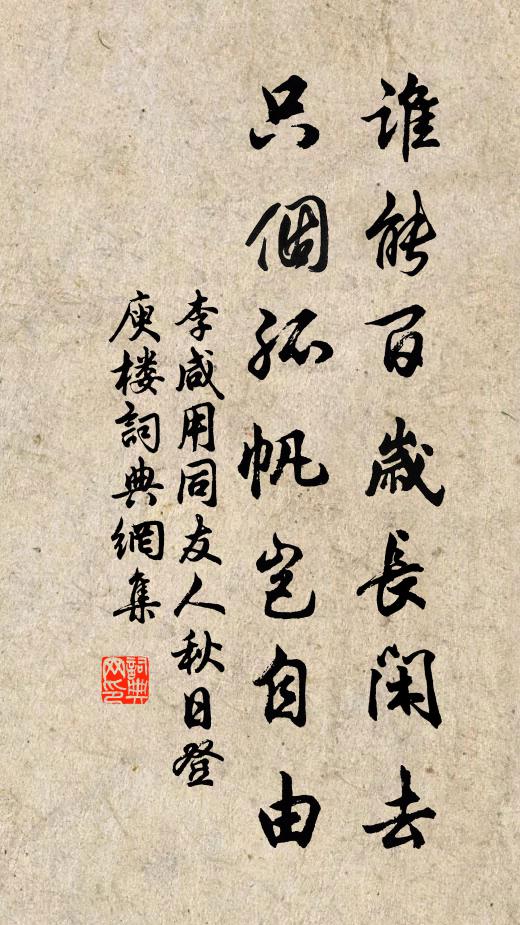 谁能百歲長閑去
只個孤帆豈自由
李咸用同友人秋日登
庾楼詞典網集
詞典
网印